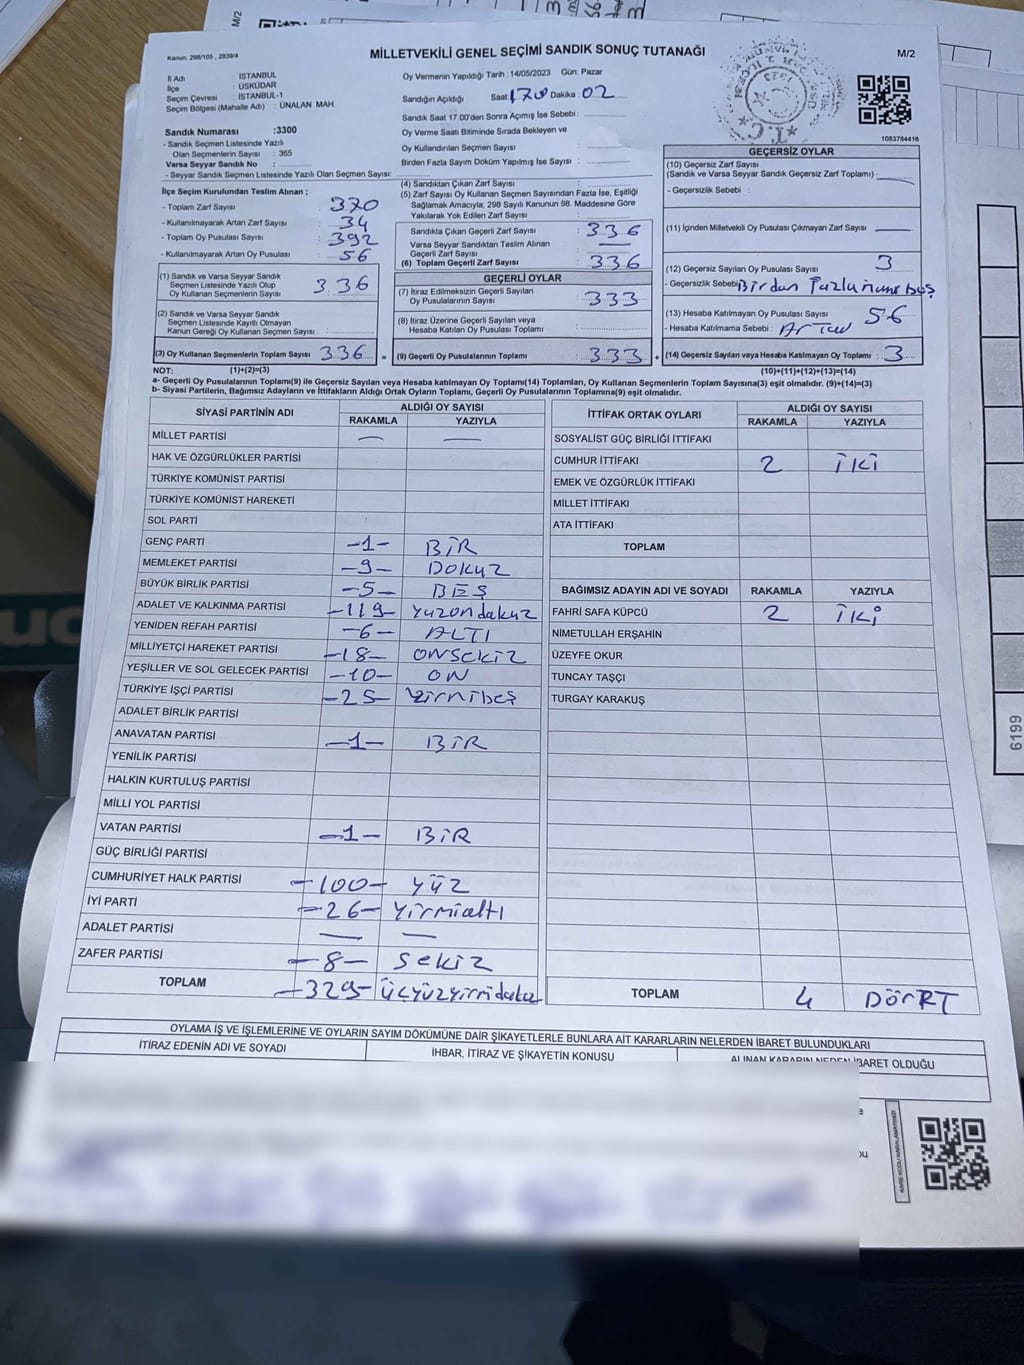 M/2
Kanun. 298/105 , 2839/4
MİLLETVEKİLİ GENEL SEÇİMİ SANDIK SONUÇ TUTANAĞI
M/2
İl Adı : İSTANBUL
İlçe : ÜSKÜDAR
Seçim Çevresi : İSTANBUL-1
Seçim Bölgesi (Mahalle Adı) : ÜNALAN MAH.
Sandık Numarası :3300
- Sandık Seçmen Listesinde Yazılı
Olan Seçmenlerin Sayısı : 365
Varsa Seyyar Sandık No :
- Seyyar Sandık Seçmen Listesinde Yazılı Olan Seçmen Sayısı:
Oy Vermenin Yapıldığı Tarih : 14/05/2023 Gün: Pazar
Sandığın Açıldığı Saat: 17.00 Dakika : 02
Sandık Saat 17.00'den Sonra Açımış İse Sebebi :
Oy Verme Saati Bitiminde Sırada Bekleyen ve
Oy Kullandırılan Seçmen Sayısı :
Birden Fazla Sayım Döküm Yapılmış İse Sayısı :
1083784416
İlçe Seçim Kurulundan Teslim Alınan ;
- Toplam Zarf Sayısı : 370
- Kullanılmayarak Artan Zarf Sayısı : 34
- Toplam Oy Pusulası Sayısı : 392
- Kullanılmayarak Artan Oy Pusulası : 56
(1) Sandık ve Varsa Seyyar Sandık
Seçmen Listesinde Yazılı Olup
Oy Kullanan Seçmenlerin Sayısı : 336
(2) Sandık ve Varsa Seyyar Sandık
Seçmen Listesinde Kayıtlı Olmayan
Kanun Gereği Oy Kullanan Seçmen Sayısı :
(3) Oy Kullanan Seçmenlerin Toplam Sayısı : 336 =
(4) Sandıktan Çıkan Zarf Sayısı :
(5) Zarf Sayısı Oy Kullanan Seçmen Sayısından Fazla İse, Eşitliği
Sağlamak Amacıyla; 298 Sayılı Kanunun 98. Maddesine Göre
Yakılarak Yok Edilen Zarf Sayısı :
Sandıkta Çıkan Geçerli Zarf Sayısı : 336
Varsa Seyyar Sandıktan Teslim Alınan
Geçerli Zarf Sayısı : —
(6) Toplam Geçerli Zarf Sayısı : 336
GEÇERLİ OYLAR
(7) İtiraz Edilmeksizin Geçerli Sayılan
Oy Pusulalarının Sayısı : 333
(8) İtiraz Üzerine Geçerli Sayılan veya
Hesaba Katılan Oy Pusulası Toplamı :
(9) Geçerli Oy Pusulalarının Toplamı : 333 +
GEÇERSİZ OYLAR
(10) Geçersiz Zarf Sayısı
(Sandık ve Varsa Seyyar Sandık Geçersiz Zarf Toplamı) : —
- Geçersizlik Sebebi :
(11) İçinden Milletvekili Oy Pusulası Çıkmayan Zarf Sayısı : —
(12) Geçersiz Sayılan Oy Pusulası Sayısı : 3
- Geçersizlik Sebebi: Birden
(13) Hesaba Katılmayan Oy Pusulası Sayısı : 56
- Hesaba Katılmama Sebebi :
(14) Geçersiz Sayılan veya Hesaba Katılmayan Oy Toplamı : 3
NOT: (1)+(2)=(3) (10)+(11)+(12)+(13)=(14)
a- Geçerli Oy Pusulalarının Toplamı(9) ile Geçersiz Sayılan veya Hesaba katılmayan Oy Toplamı(14) Toplamları, Oy Kullanan Seçmenlerin Toplam Sayısına(3) eşit olmalıdır. (9)+(14)=(3)
b- Siyasi Partilerin, Bağımsız Adayların ve İttifakların Aldığı Oyların Toplamı, Geçerli Oy Pusulalarının Toplamına(9) eşit olmalıdır.
SİYASİ PARTİNİN ADI ALDIĞI OY SAYISI
RAKAMLA YAZIYLA
MİLLET PARTİSİ — —
HAK VE ÖZGÜRLÜKLER PARTİSİ
TÜRKİYE KOMÜNİST PARTİSİ
TÜRKİYE KOMÜNİST HAREKETİ
SOL PARTİ
GENÇ PARTİ -1- BİR
MEMLEKET PARTİSİ -9- DOKUZ
BÜYÜK BİRLİK PARTİSİ -5- BEŞ
ADALET VE KALKINMA PARTİSİ -119- yüzondokuz
YENİDEN REFAH PARTİSİ -6- ALTI
MİLLİYETÇİ HAREKET PARTİSİ -18- ONSEKİZ
YEŞİLLER VE SOL GELECEK PARTİSİ -10- ON
TÜRKİYE İŞÇİ PARTİSİ -25- Yirmibeş
ADALET BİRLİK PARTİSİ
ANAVATAN PARTİSİ -1- BİR
YENİLİK PARTİSİ
HALKIN KURTULUŞ PARTİSİ
MİLLİ YOL PARTİSİ
VATAN PARTİSİ -1- BİR
GÜÇ BİRLİĞİ PARTİSİ
CUMHURİYET HALK PARTİSİ -100- YÜZ
İYİ PARTİ -26- Yirmialtı
ADALET PARTİSİ — —
ZAFER PARTİSİ -8- Sekiz
TOPLAM -329- üçyüzyirmidokuz
İTTİFAK ORTAK OYLARI ALDIĞI OY SAYISI
RAKAMLA YAZIYLA
SOSYALİST GÜÇ BİRLİĞİ İTTİFAKI
CUMHUR İTTİFAKI 2 İKİ
EMEK VE ÖZGÜRLÜK İTTİFAKI
MİLLET İTTİFAKI
ATA İTTİFAKI
TOPLAM
BAĞIMSIZ ADAYIN ADI VE SOYADI RAKAMLA YAZIYLA
FAHRİ SAFA KÜPCÜ 2 İKİ
NİMETULLAH ERŞAHİN
ÜZEYFE OKUR
TUNCAY TAŞÇI
TURGAY KARAKUŞ
TOPLAM 4 DÖRT
OYLAMA İŞ VE İŞLEMLERİNE VE OYLARIN SAYIM DÖKÜMÜNE DAİR ŞİKAYETLERLE BUNLARA AİT KARARLARIN NELERDEN İBARET BULUNDUKLARI
İTİRAZ EDENİN ADI VE SOYADI İHBAR, İTİRAZ VE ŞİKAYETİN KONUSU ALINAN KARARIN NEDEN İBARET OLDUĞU
6199